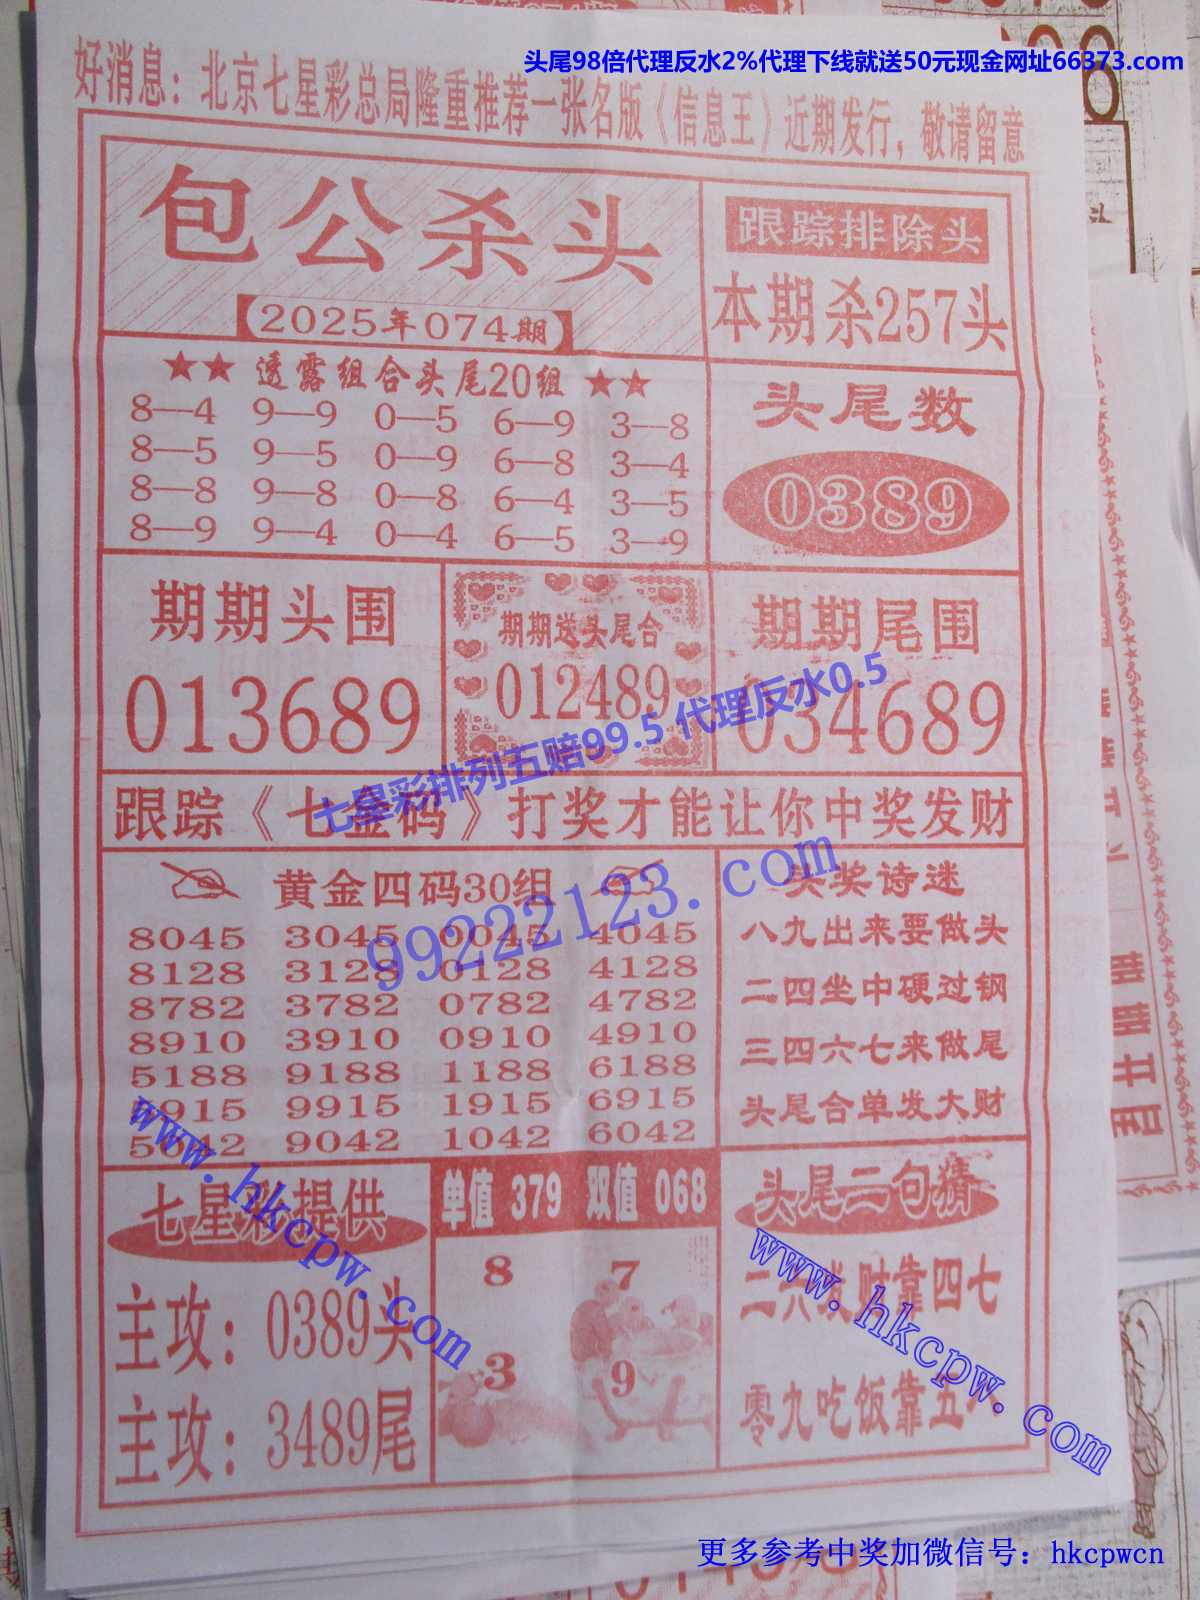 头尾98倍代理反水2%代理下线就送50元现金网址66373.com
好消息：北京七星彩总局隆重推荐一张名版《信息王》近期发行，敬请留意
包公杀头
【2025年074期】
跟踪排除头
本期杀257头
★★ 透露组合头尾20组 ★★
8—4 9—9 0—5 6—9 3—8
8—5 9—5 0—9 6—8 3—4
8—8 9—8 0—8 6—4 3—5
8—9 9—4 0—4 6—5 3—9
头尾数
0389
期期头围
013689
期期送头尾合
012489
期期尾围
034689
七星彩排列五赔99.5 代理反水0.5
跟踪《七金码》打奖才能让你中奖发财
黄金四码30组
8045 3045 0045 4045
8128 3128 0128 4128
8782 3782 0782 4782
8910 3910 0910 4910
5188 9188 1188 6188
5915 9915 1915 6915
5042 9042 1042 6042
99222123.com
头奖诗迷
八九出来要做头
二四坐中硬过钢
三四六七来做尾
头尾合单发大财
七星彩提供
主攻：0389头
主攻：3489尾
www.hkcpw.com
单值 379 双值 068
8 7
3 9
头尾二句精
二六发财靠四七
零九吃饭靠五八
www.hkcpw.com
更多参考中奖加微信号：hkcpwcn